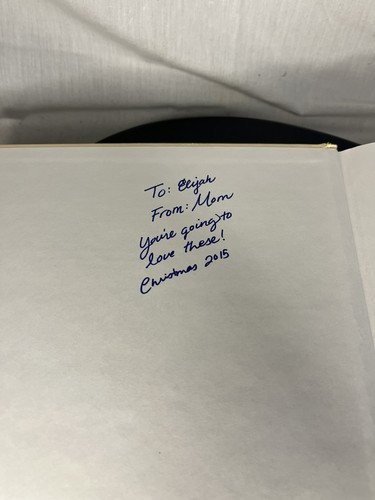 To: Elijah
From: Mom
You're going to
love these!
Christmas 2015